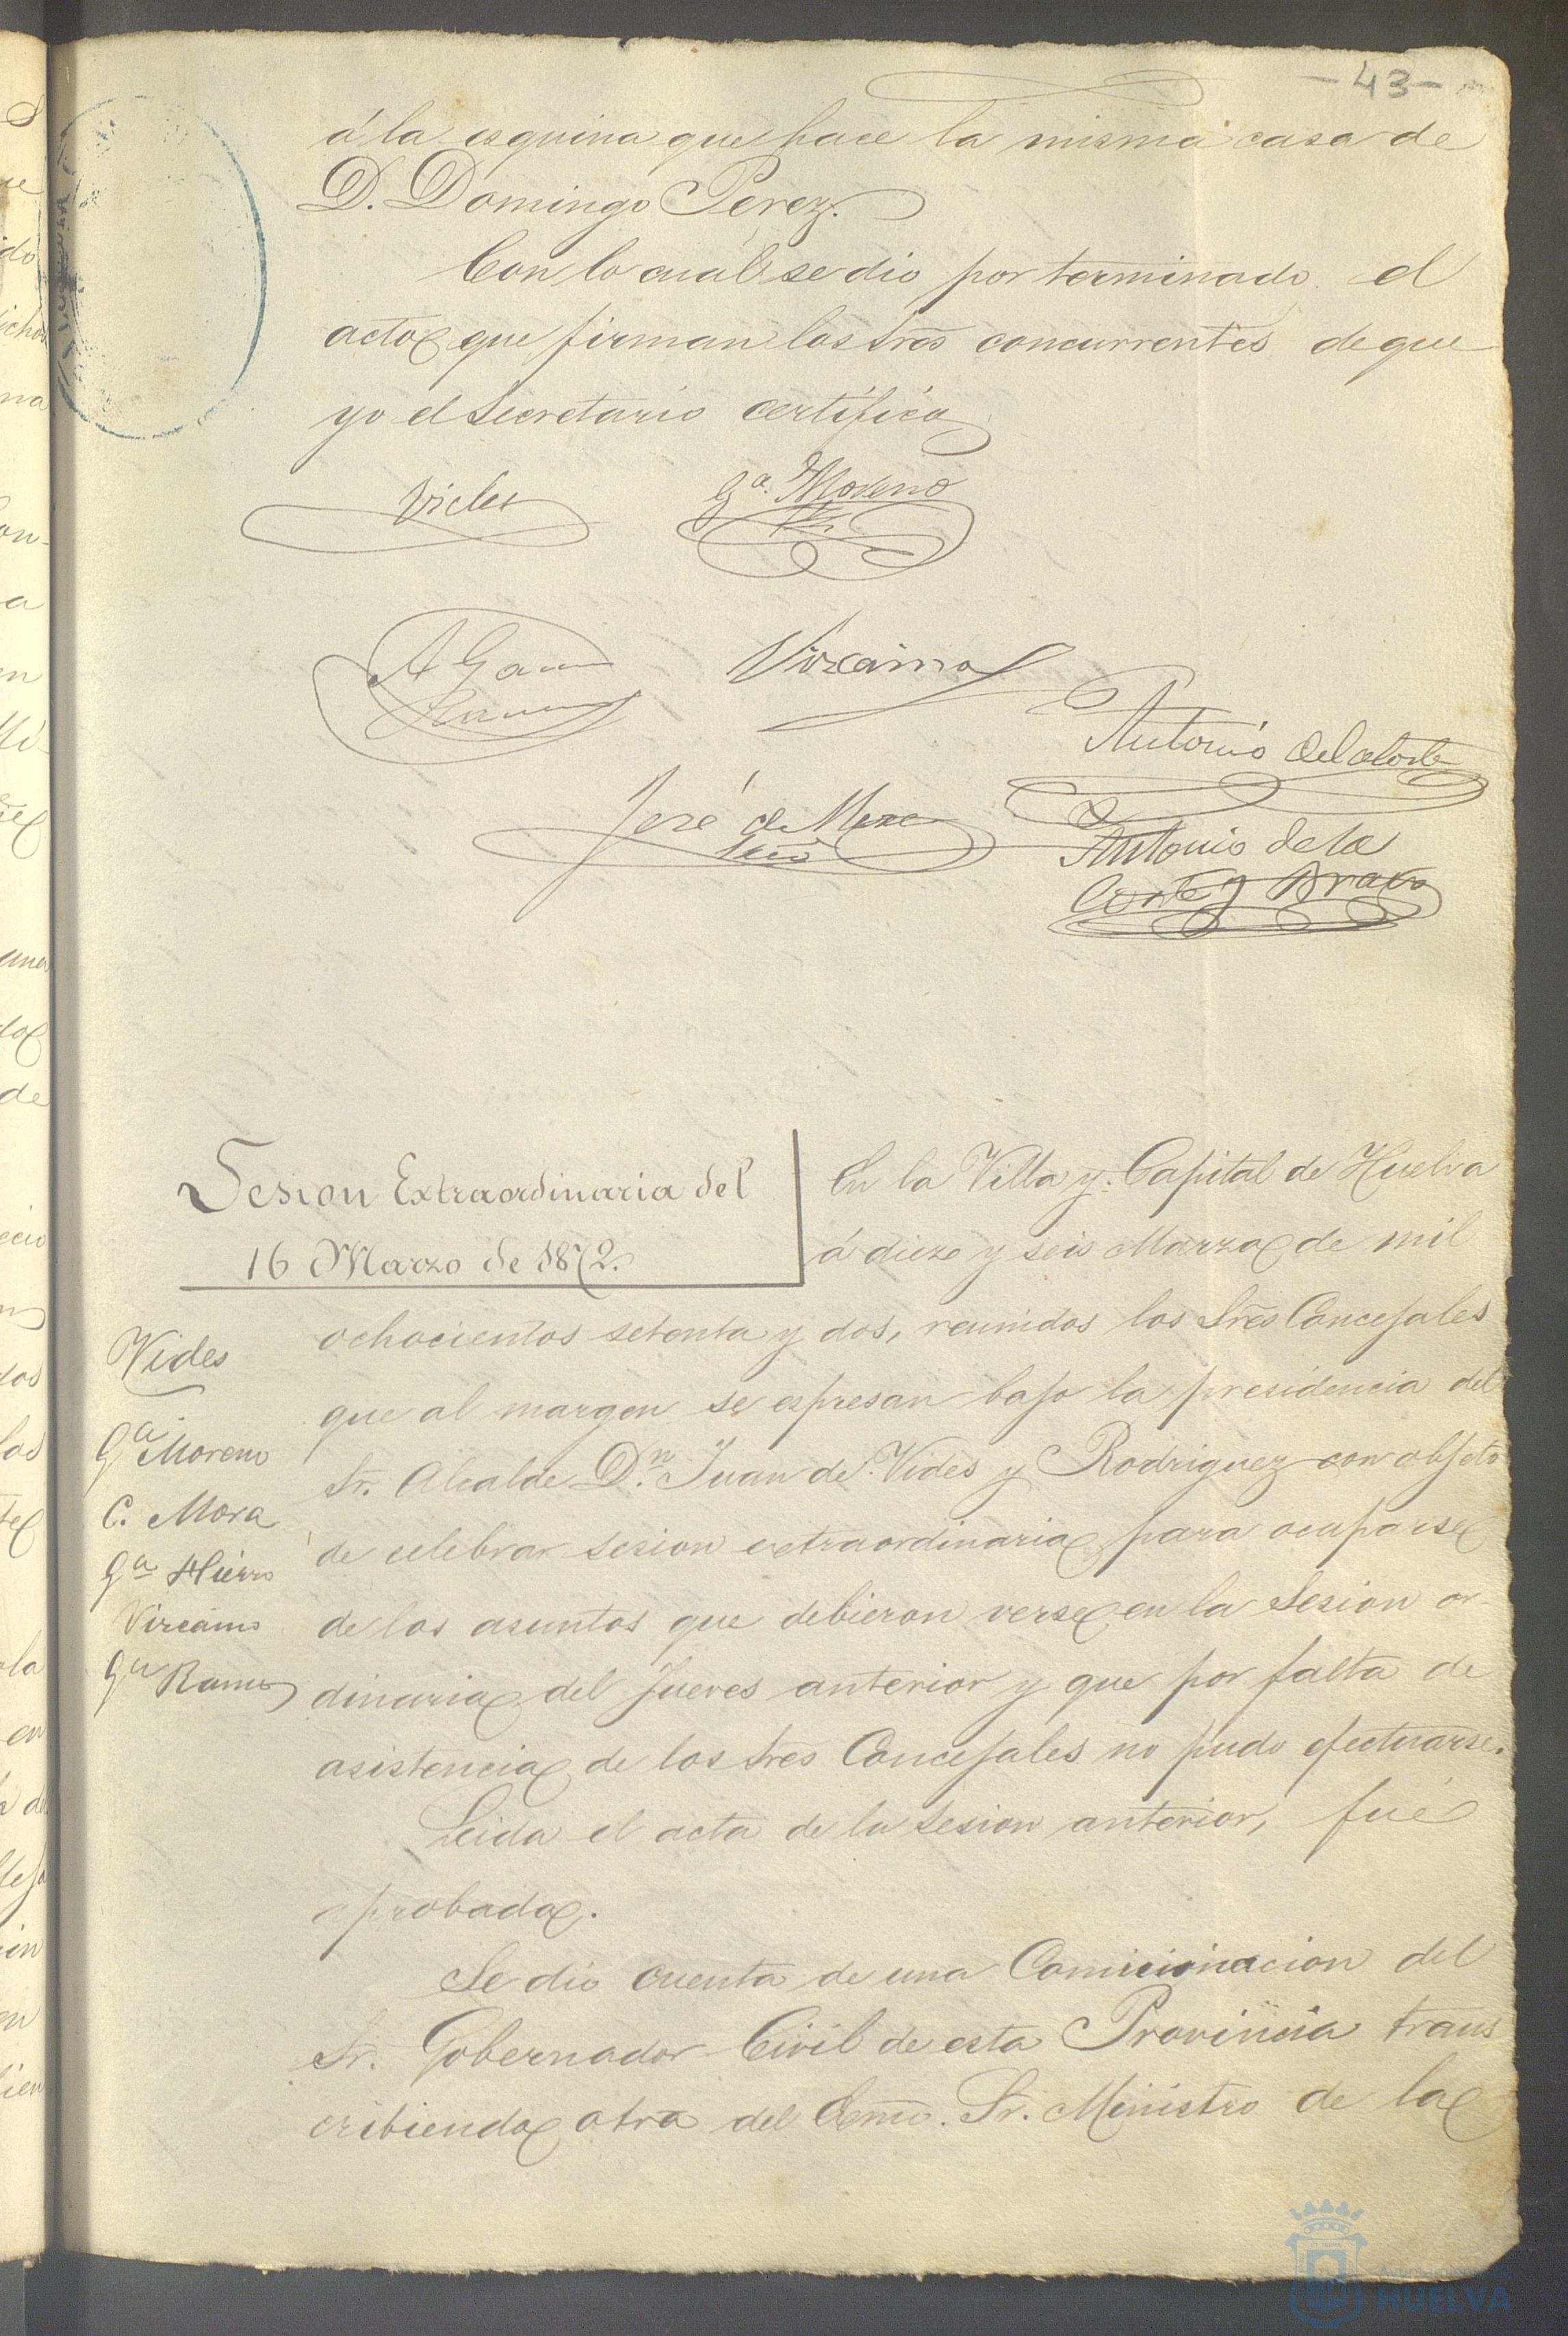 -43-
á la esquina que hace la misma casa de
D. Domingo Perez.
Con lo cual se dio por terminado el
acto que firman los Sres concurrentes de que
yo el Secretario certifico
Vides
Ga. Moreno
A Garcia
Ramos
Vizcaino
Antonio del
José de
Srio
Antonio de la
Corte y Bravo
Sesion Extraordinaria del
16 Marzo de 1872.
En la Villa y Capital de Huelva
á diez y seis Marzo de mil
ochocientos setenta y dos, reunidos los Sres Concejales
que al margen se espresan bajo la presidencia del
Sr. Alcalde Dn. Juan de Vides y Rodriguez con objeto
de celebrar sesion extraordinaria para ocuparse
de los asuntos que debieron verse en la Sesion or
dinaria del Jueves anterior y que por falta de
asistencia de los Sres Concejales no pudo efectuarse.
Vides
Ga Moreno
C. Mora
Ga Hierro
Vizcaino
Ga Ramos
Leida el acta de la Sesion anterior, fué
aprobada.
Se dió cuenta de una Comicionacion del
Sr. Gobernador Civil de esta Provincia trans
cribiendo otra del Exmo. Sr. Ministro de la
HUELVA